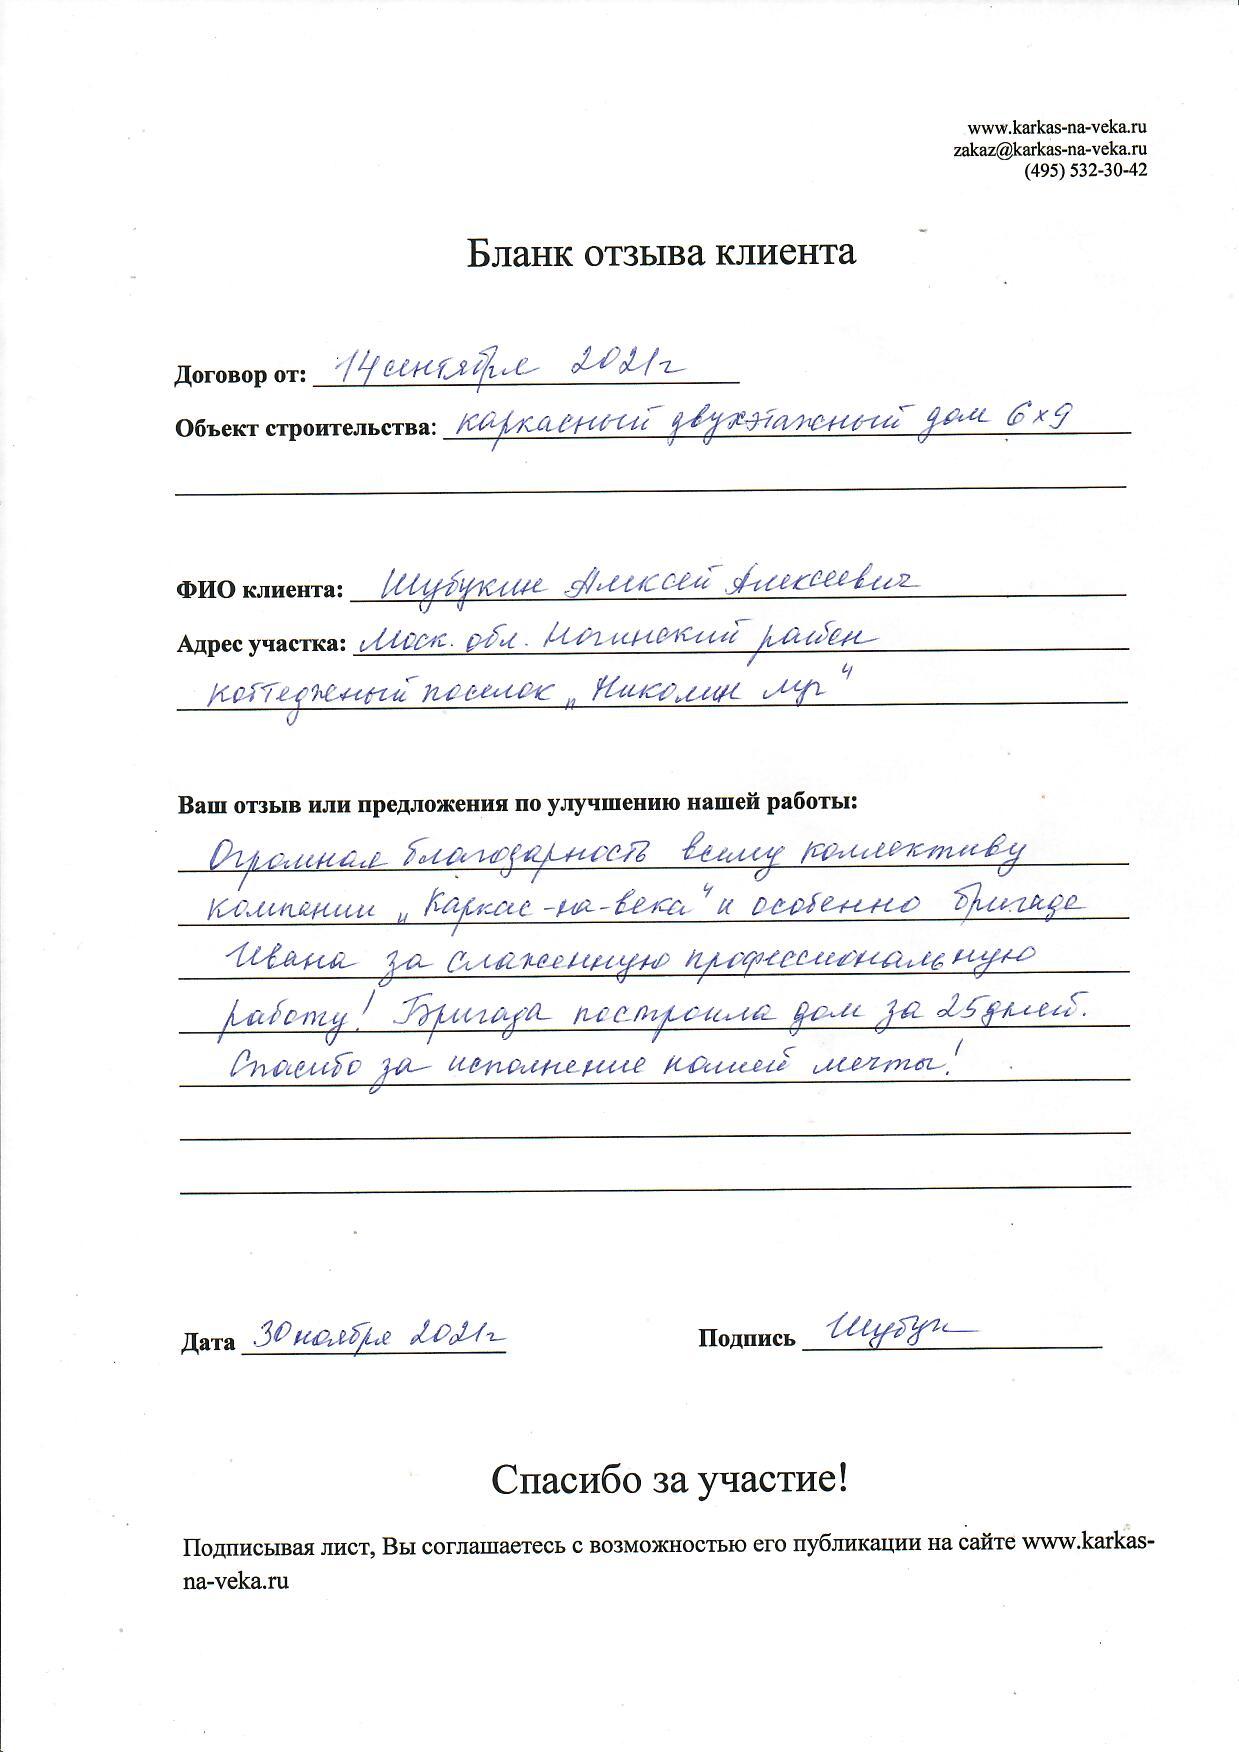 www.karkas-na-veka.ru
zakaz@karkas-na-veka.ru
(495) 532-30-42
Бланк отзыва клиента
Договор от: 14 сентября 2021г
Объект строительства: каркасный двухэтажный дом 6х9
ФИО клиента: Шубукин Алексей Алексеевич
Адрес участка: Моск. обл. Ногинский район
коттеджный поселок „Николин луг"
Ваш отзыв или предложения по улучшению нашей работы:
Огромная благодарность всему коллективу
компании „Каркас-на-века" и особенно бригаде
Ивана за слаженную профессиональную
работу! Бригада построила дом за 25 дней.
Спасибо за исполнение нашей мечты!
Дата 30 ноября 2021г Подпись Шубук
Спасибо за участие!
Подписывая лист, Вы соглашаетесь с возможностью его публикации на сайте www.karkas-
na-veka.ru